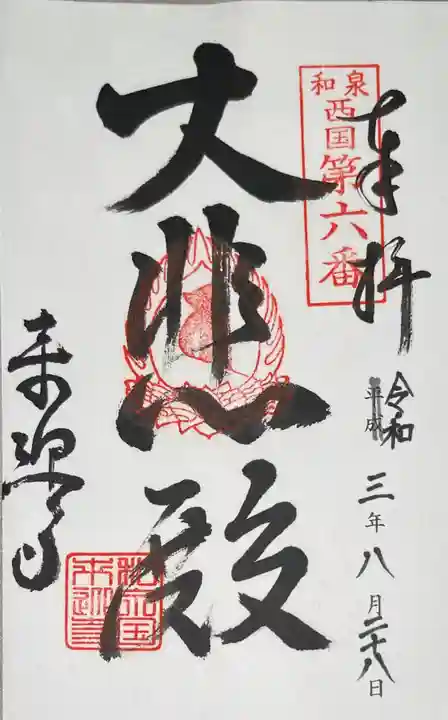 奉拝
和泉
西国第六番
平成
令和
三年八月二十八日
大悲殿
来迎寺
和泉国来迎寺